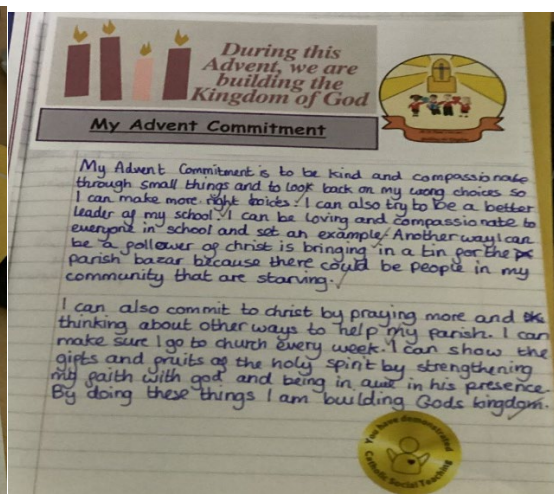 During this
Advent, we are
building the
Kingdom of God
My Advent Commitment
My Advent Commitment is to be kind and compassionate
through small things and to look back on my wrong choices so
I can make more right choices. I can also try to be a better
leader of my school. I can be loving and compassionate to
everyone in school and set an example. Another way I can
be a follower of christ is bringing in a tin for the
parish bazar because there could be people in my
community that are starving.
I can also commit to christ by praying more and
thinking about other ways to help my parish. I can
make sure I go to church every week. I can show the
gifts and fruits of the holy spirit by strengthening
my faith with god and being in awe in his presence.
By doing these things I am building Gods kingdom.
You have demonstrated
Catholic Social Teaching